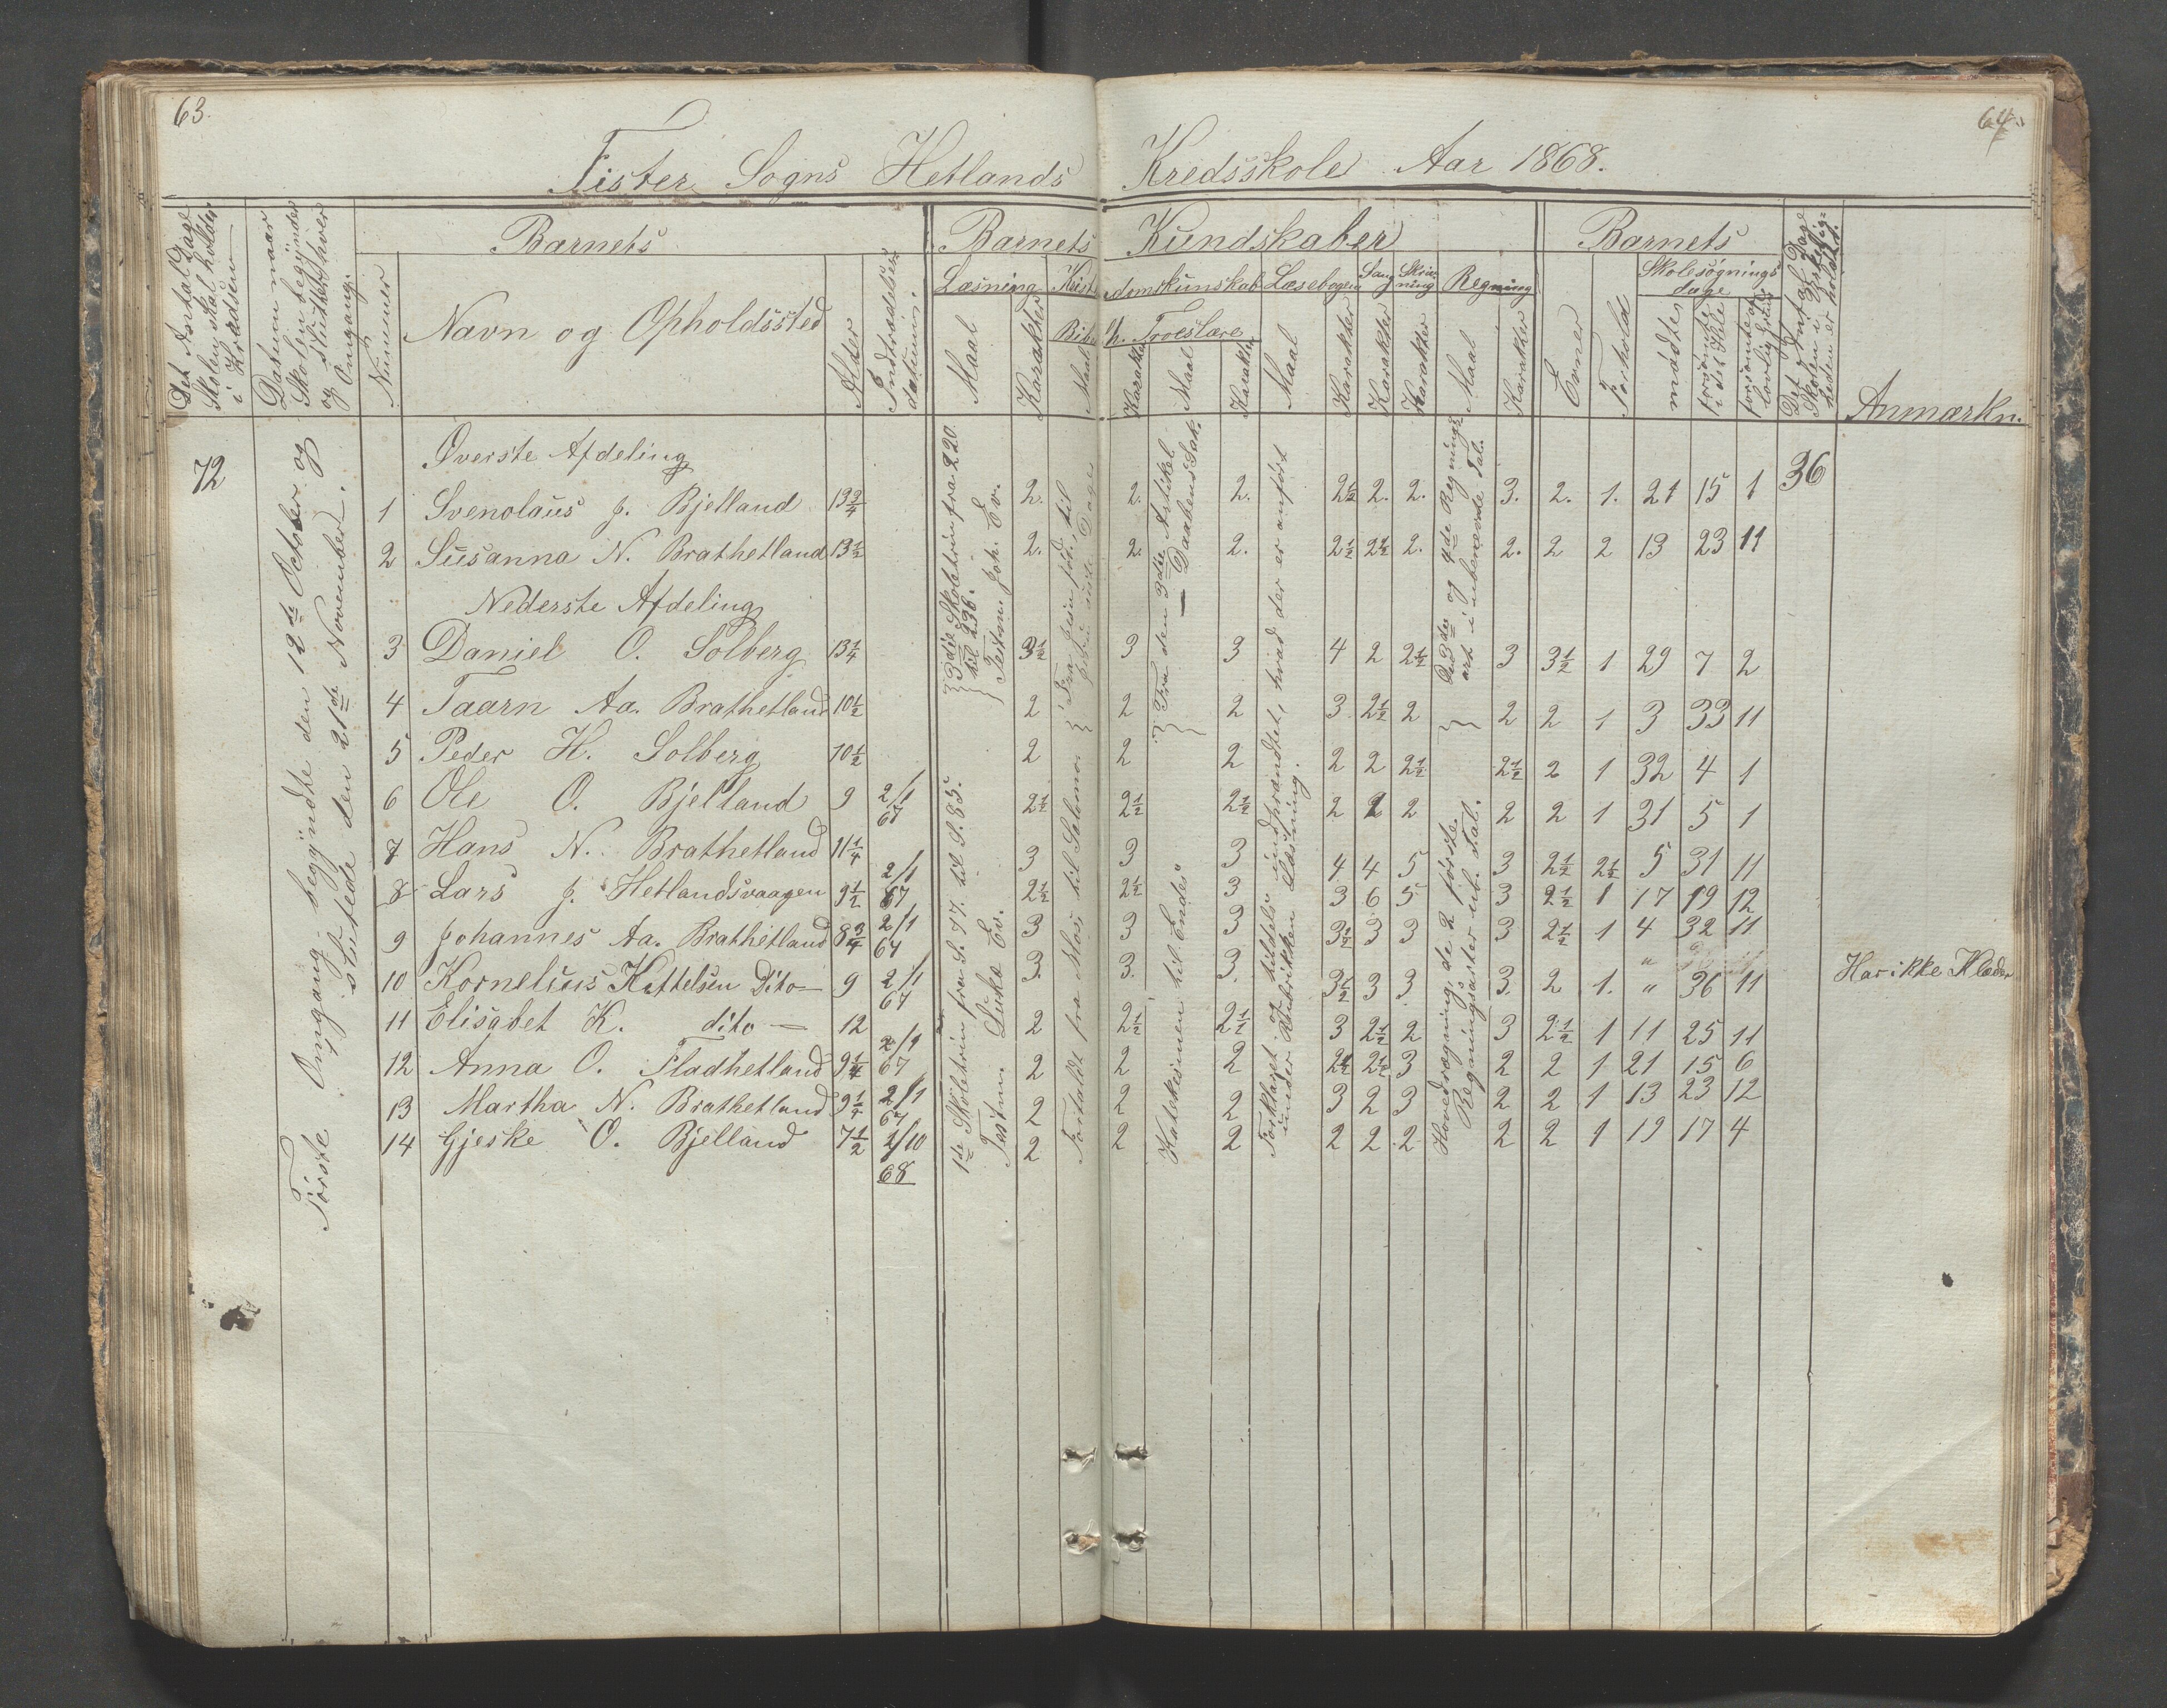 63.
64.
Fister Sogns Hetlands Kredsskole Aar 1868.
Det Antal Dage Skolen skal holdes i Kredsen
Datum naar Skolen begÿnder og slutter hver Omgang.
Barnets
Nummer
Navn og Opholdssted
Alder
Indtrædelses datum.
Barnets Kundskaber
Læsning
Maal
Karakter
Kristendomskunskab
Bibelh.
Maal
Karakter
Troeslære
Maal
Karakter
Læsebogen
Maal
Karakter
Sang
Karakter
Skrivning
Karakter
Regning
Maal
Karakter
Barnets
Evner
Forhold
Skolesøgningsdage
mødte
forsömte i det Hele
forsömte af lovlig Grund
Det Antal Dage Skolen i Virkeligheden er holdt.
Anmærkn.
72
Første Omgang begÿndte den 12te October og sluttede den 21de November.
36
Øverste Afdeling
1 Svenolaus J. Bjelland 13 3/4 2. 2. 2. 2 1/2 2. 2. 3. 2. 1. 21 15 1
2 Susanna N. Brathetland 13 1/2 2. 2. 2. 2 1/2 2 1/2 2. 2. 2 2 13 23 11
Nederste Afdeling
3 Daniel O. Solberg 13 1/4 3 1/2 3 3 4 2 2 1/2 3 3 1/2 1 29 7 2
4 Taarn Aa. Brathetland 10 1/2 2 2 2 3 2 1/2 2 2 2 1 3 33 11
5 Peder H. Solberg 10 1/2 2 2 2 2 2 2 1/2 2 1/2 2 1 32 4 1
6 Ole O. Bjelland 9 2/1 67 2 1/2 2 1/2 2 1/2 2 2 2 2 2 1 31 5 1
7 Hans N. Brathetland 11 1/4 3 3 3 4 4 5 3 2 1/2 2 1/2 5 31 11
8 Lars J. Hetlandsvaagen 9 1/2 2/1 67 2 1/2 2 1/2 3 3 6 5 3 2 1/2 1 17 19 12
9 Johannes Aa. Brathetland 8 3/4 2/1 67 3 3 3 3 1/2 3 3 3 2 1/2 1 4 32 11
10 Kornelius Kittelsen Dito — 9 2/1 67 3. 3. 3. 3 1/2 3 3. 3. 2 1. " 36 11 Har ikke Klæder
11 Elisabet K. dito — 12 2 2 1/2 2 1/2 3 2 1/2 2 3 2 1/2 1 11 25 11
12 Anna O. Fladhetland 9 1/4 2/1 67 2 2 2 2 1/2 2 1/2 3 2 2 1 21 15 6
13 Martha N. Brathetland 9 1/2 2/1 67 2 2 2 3 2 3 2 2 1 13 23 12
14 Gjeske O. Bjelland 7 1/2 2/10 68 2 2 2 2 2 2 2 2 1 19 17 4
3die Skoletrin fra 220 til 236.
Testm. Joh. Ev.
1ste Skoletrin fra S. 47. til S. 85.
Testm. Lukæ Ev.
Fortaldt fra Mose til Salomo
Fra den 3die Artikel — Daabens Sak.
Katekismen til Ende"
Forklaret og tildels indprændtet, hvad der er anført under Rubrikken Læsning.
Den 3die og 4de Regningsart i ubenævnte Tal.
Hovedregning, de 2 første Regningsarter ub. Tal.